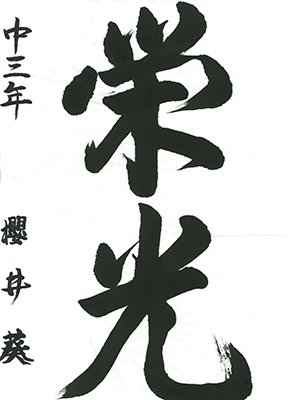 栄光
中三年 櫻井葵